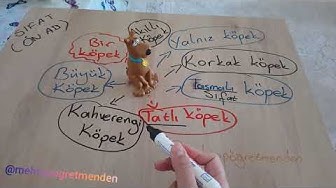 SIFAT
(ÖN AD)
Bir
köpek
Akıllı
köpek
Yalnız köpek
Korkak köpek
Büyük
köpek
Tasmalı köpek
Sıfat
Kahverengi
Köpek
Tatlı köpek